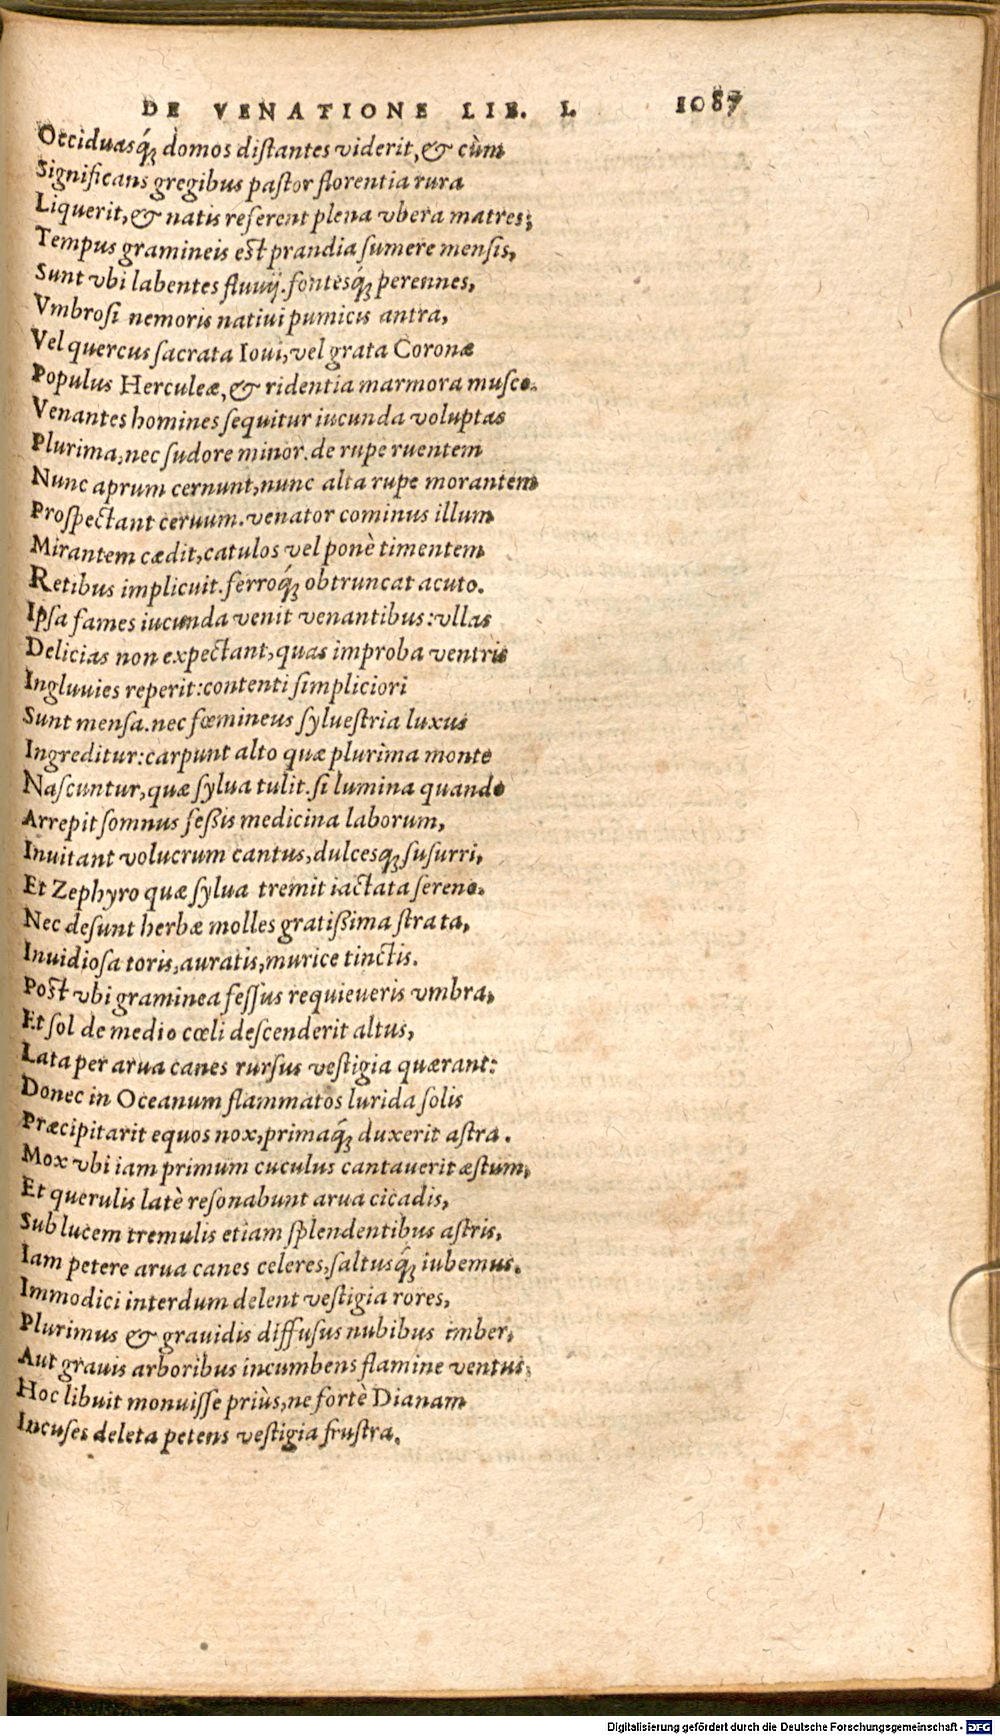 DE VENATIONE LIB. I. 1087
Occiduasq́; domos distantes viderit, & cùm
Significans gregibus pastor florentia rura
Liquerit, & natis referent plena vbera matres;
Tempus gramineis est prandia sumere mensis,
Sunt vbi labentes fluuij. fontesq́; perennes,
Vmbrosi nemoris natiui pumicis antra,
Vel quercus sacrata Ioui, vel grata Coronæ
Populus Herculeæ, & ridentia marmora musco.
Venantes homines sequitur iucunda voluptas
Plurima, nec sudore minor. de rupe ruentem
Nunc aprum cernunt, nunc alta rupe morantem
Prospectant ceruum. venator cominus illum
Mirantem cædit, catulos vel ponè timentem
Retibus implicuit. ferroq́; obtruncat acuto.
Ipsa fames iucunda venit venantibus: vllas
Delicias non expectant, quas improba ventris
Ingluuies reperit: contenti simpliciori
Sunt mensa. nec fœmineus syluestria luxus
Ingreditur: carpunt alto quæ plurima monte
Nascuntur, quæ sylua tulit. si lumina quando
Arrepit somnus fessis medicina laborum,
Inuitant volucrum cantus, dulcesq; susurri,
Et Zephyro quæ sylua tremit iactata sereno.
Nec desunt herbæ molles gratissima strata,
Inuidiosa toris, auratis, murice tinctis.
Post vbi graminea fessus requieueris vmbra,
Et sol de medio cœli descenderit altus,
Lata per arua canes rursus vestigia quærant:
Donec in Oceanum flammatos lurida solis
Præcipitarit equos nox, primaq́; duxerit astra.
Mox vbi iam primum cuculus cantauerit æstum,
Et querulis latè resonabunt arua cicadis,
Sub lucem tremulis etiam splendentibus astris,
Iam petere arua canes celeres, saltusq́; iubemus.
Immodici interdum delent vestigia rores,
Plurimus & grauidis diffusus nubibus imber,
Aut grauis arboribus incumbens flamine ventus;
Hoc libuit monuisse priùs, ne fortè Dianam
Incuses deleta petens vestigia frustra.
Digitalisierung gefördert durch die Deutsche Forschungsgemeinschaft - DFG